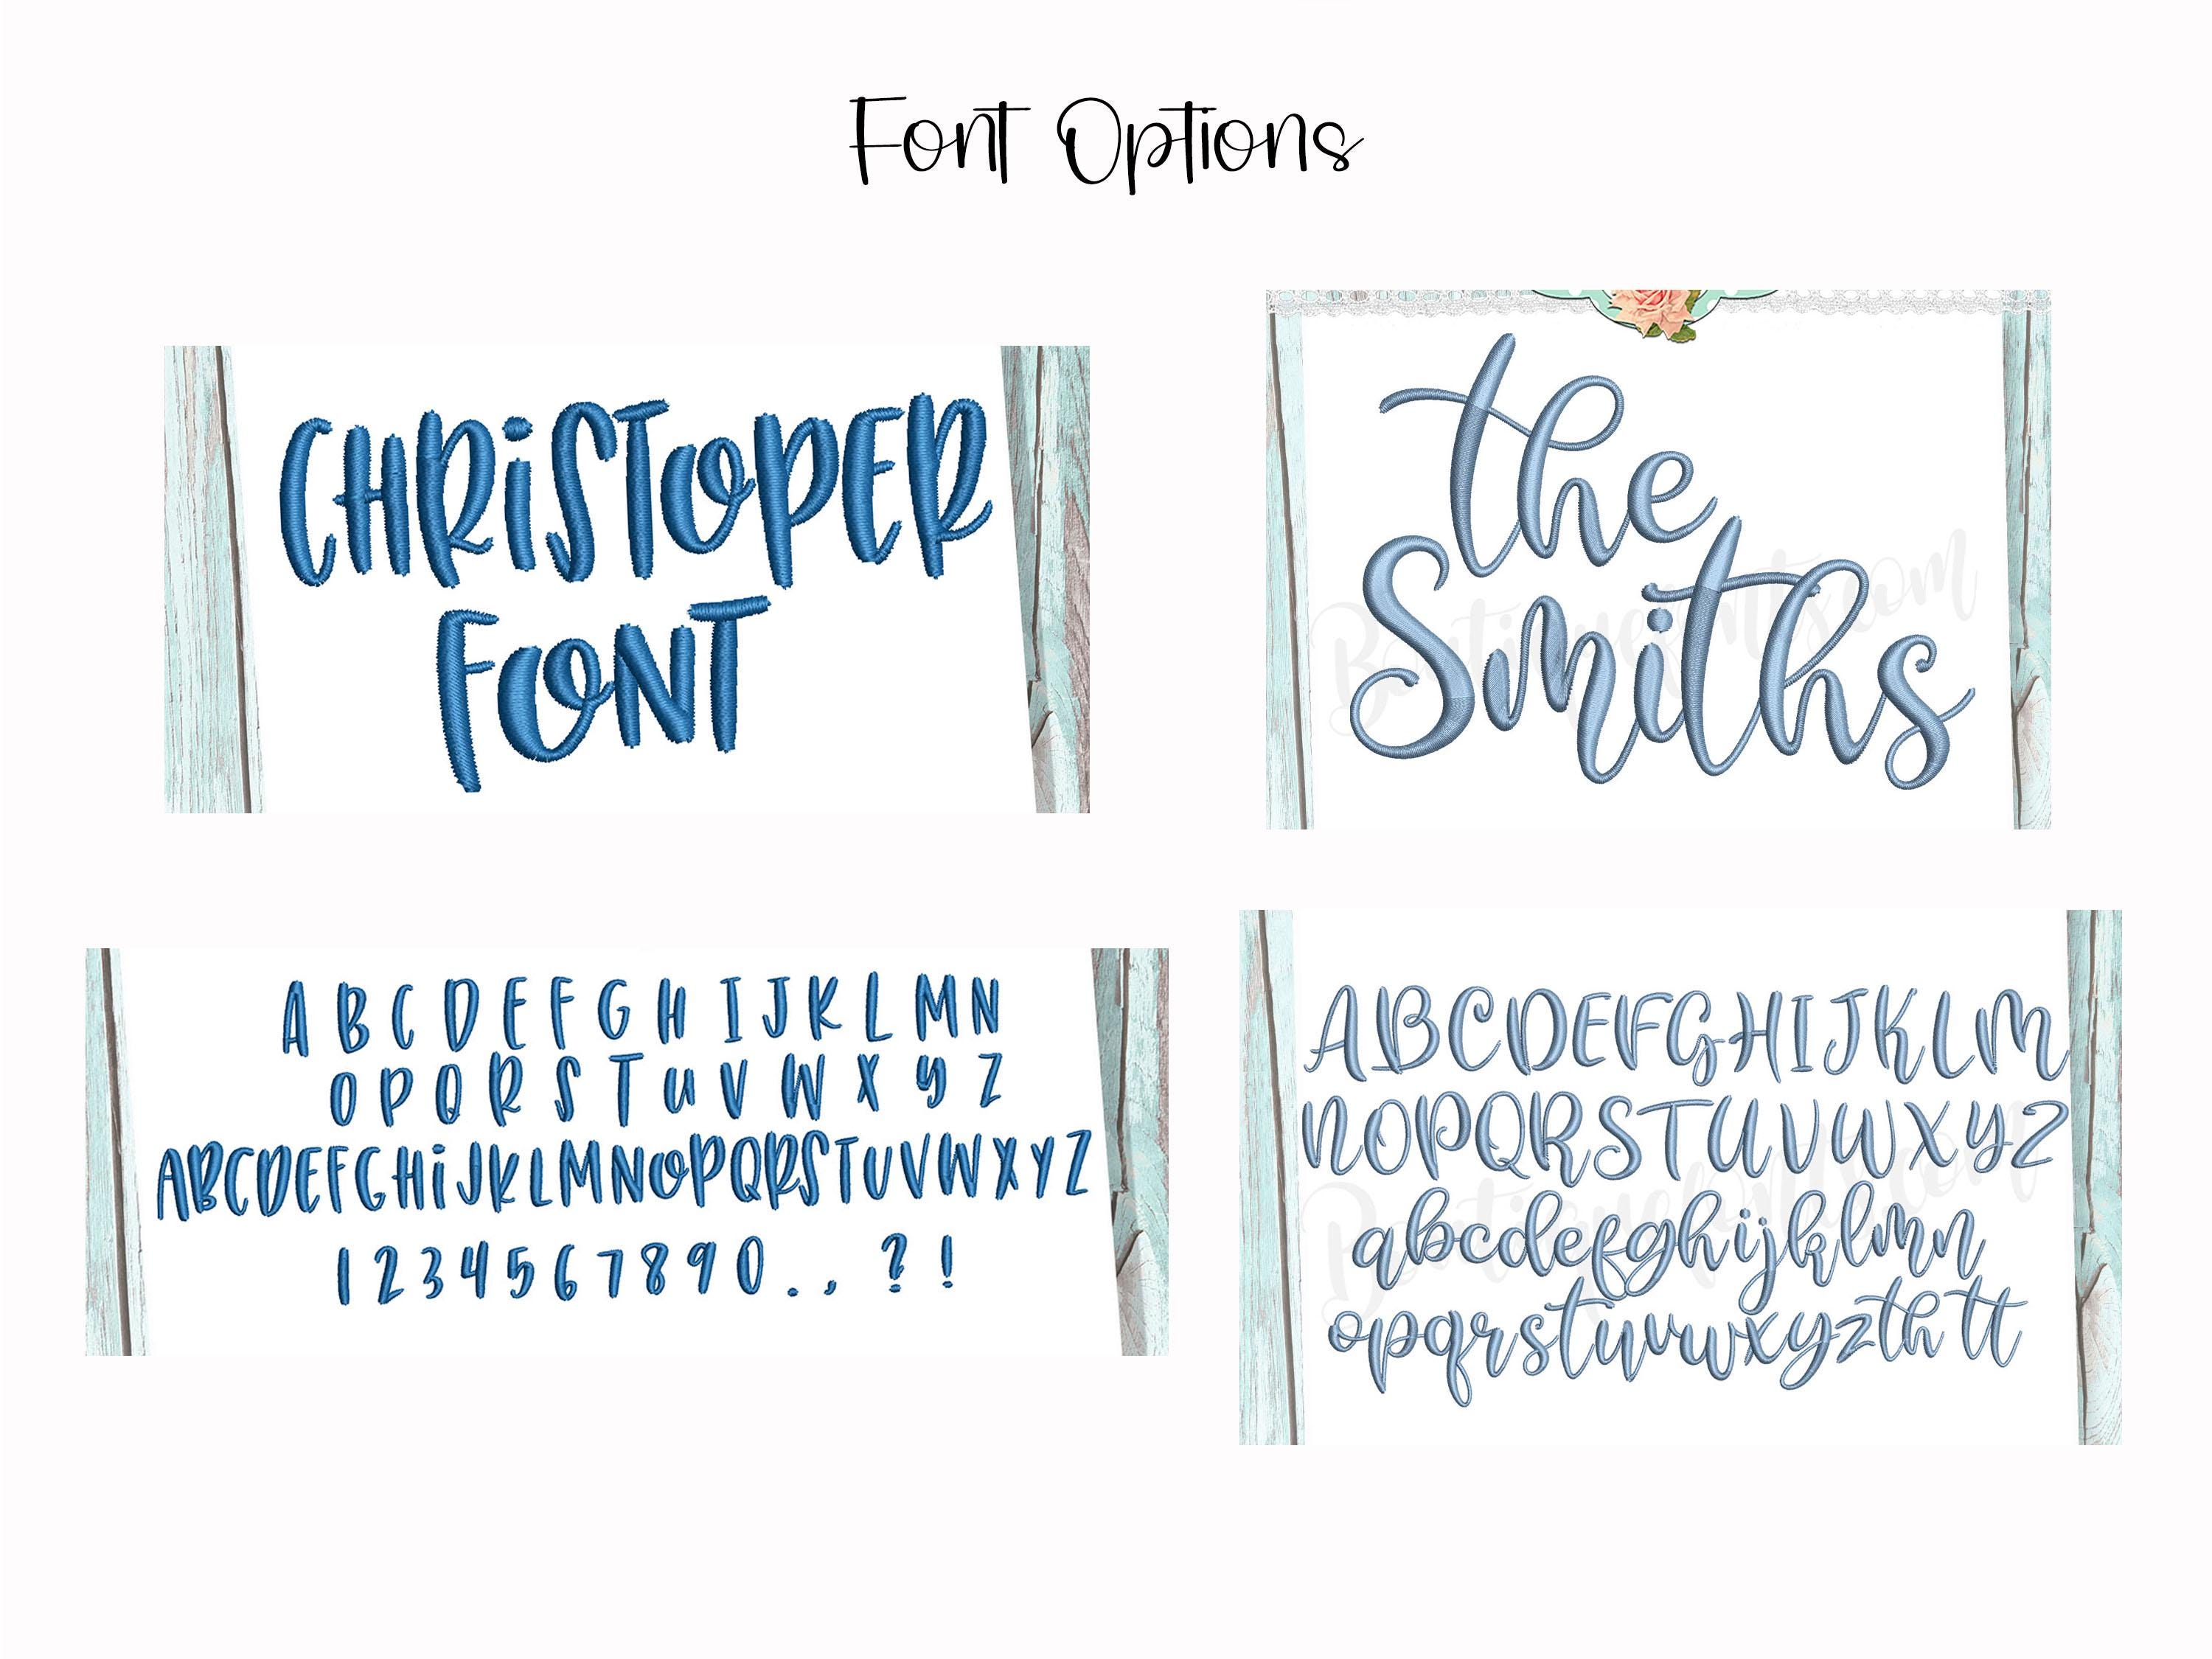 Font Options
CHRiSTOPER
FONT
the
Smiths
Boutiquefonts.com
A B C D E F G H I J K L M N
O P Q R S T U V W X Y Z
ABCDEFGHiJKLMNOPQRSTUVWXYZ
1 2 3 4 5 6 7 8 9 0 . , ? !
ABCDEFGHIJKLM
NOPQRSTUVWXYZ
abcdefghijklmn
opqrstuvwxyzthtt
Boutiquefonts.com